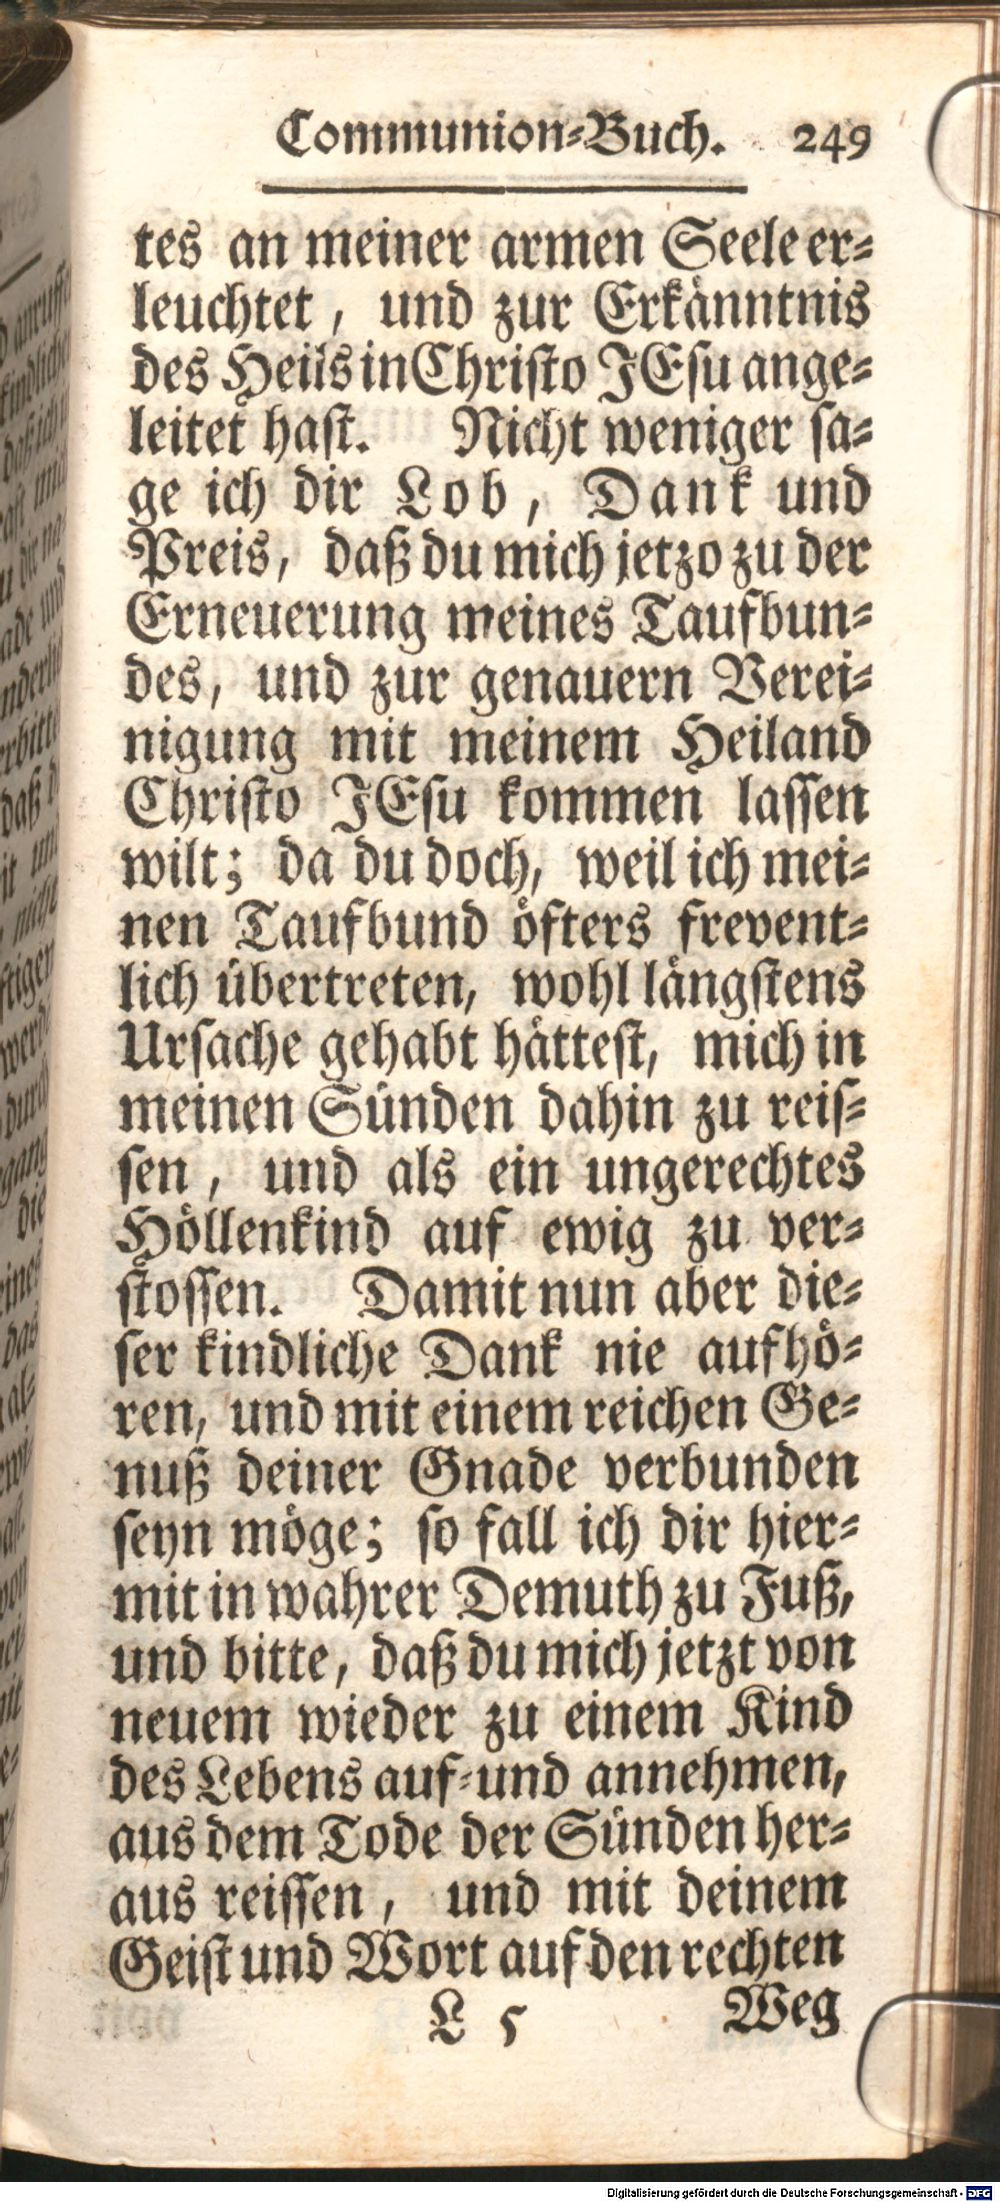 Communion-Buch. 249
tes an meiner armen Seele er-
leuchtet, und zur Erkänntnis
des Heils in Christo JEsu ange-
leitet hast. Nicht weniger sa-
ge ich dir Lob, Dank und
Preis, daß du mich jetzo zu der
Erneuerung meines Taufbun-
des, und zur genauern Verei-
nigung mit meinem Heiland
Christo JEsu kommen lassen
wilt; da du doch, weil ich mei-
nen Taufbund öfters frevent-
lich übertreten, wohl längstens
Ursache gehabt hättest, mich in
meinen Sünden dahin zu reis-
sen, und als ein ungerechtes
Höllenkind auf ewig zu ver-
stossen. Damit nun aber die-
ser kindliche Dank nie aufhö-
ren, und mit einem reichen Ge-
nuß deiner Gnade verbunden
seyn möge; so fall ich dir hier-
mit in wahrer Demuth zu Fuß,
und bitte, daß du mich jetzt von
neuem wieder zu einem Kind
des Lebens auf-und annehmen,
aus dem Tode der Sünden her-
aus reissen, und mit deinem
Geist und Wort auf den rechten
L 5 Weg
Digitalisierung gefördert durch die Deutsche Forschungsgemeinschaft - DFG